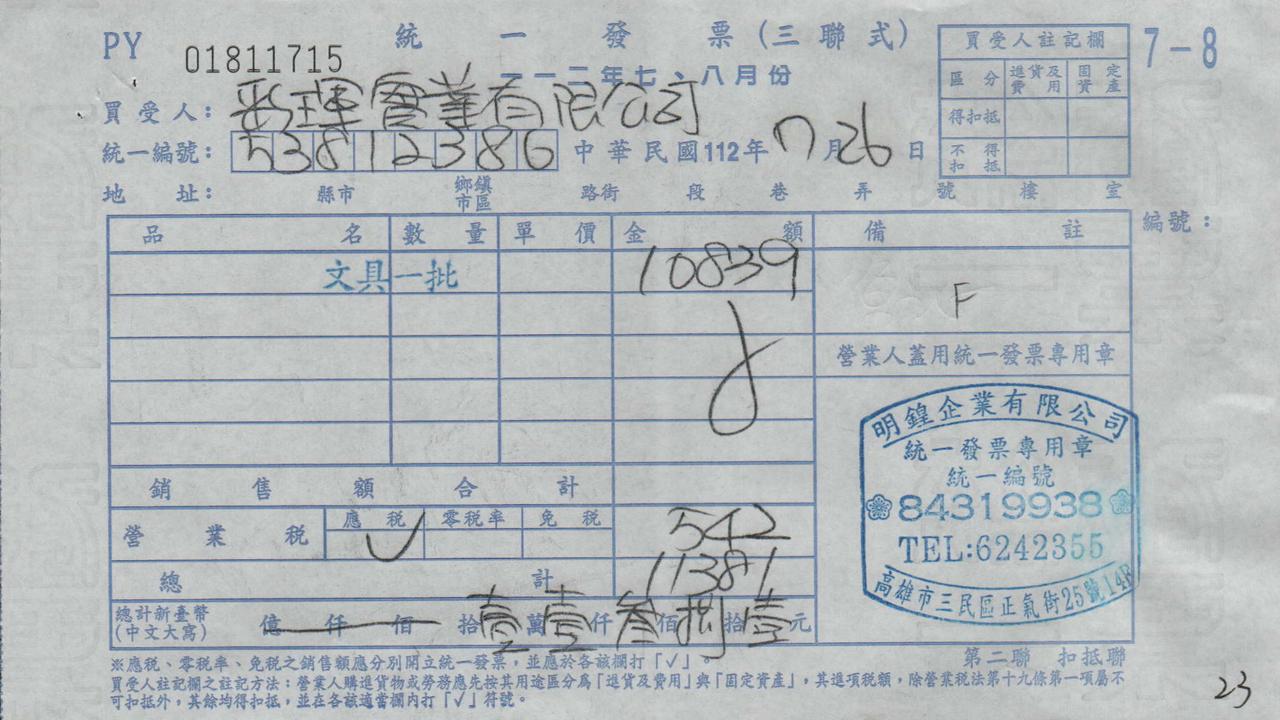 PY 01811715 統一發票(三聯式)
一一二年七、八月份
7-8
買受人註記欄
區分 進貨及費用 固定資產
得扣抵
不得扣抵
買受人: 彩琿實業有限公司
統一編號: 53812386 中華民國112年7月26日
地址: 縣市 鄉鎮市區 路街 段 巷 弄 號 樓 室
品名 數量 單價 金額 備註 編號:
文具一批 10839
F
營業人蓋用統一發票專用章
明鍠企業有限公司
統一發票專用章
統一編號
84319938
TEL:6242355
高雄市三民區正氣街25號14F
銷售額合計
營業稅 應稅 零稅率 免稅 542
✓
總計 11381
總計新臺幣(中文大寫) 億仟佰拾壹萬壹仟叁佰捌拾壹元
※應稅、零稅率、免稅之銷售額應分別開立統一發票,並應於各該欄打「✓」。
第二聯 扣抵聯
買受人註記欄之註記方法:營業人購進貨物或勞務應先按其用途區分為「進貨及費用」與「固定資產」,其進項稅額,除營業稅法第十九條第一項屬不
可扣抵外,其餘均得扣抵,並在各該適當欄內打「✓」符號。
23